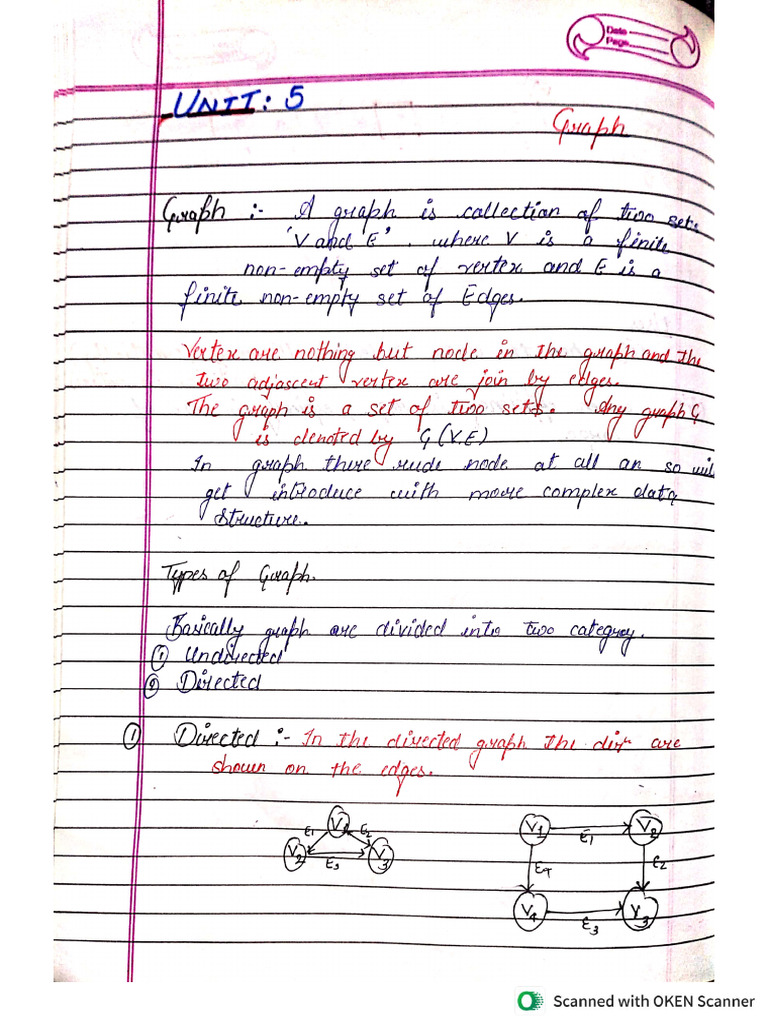 Date
Page
UNIT: 5
Graph
Graph :- A graph is collection of two sets
'V and E'. where V is a finite
non-empty set of vertex and E is a
finite non-empty set of Edges.
Vertex are nothing but node in the graph and the
two adjascent vertex are join by edges.
The graph is a set of two sets. Any graph G
is denoted by G(V.E)
In graph there rude node at all an so will
get introduce with more complex data
structure.
Types of Graph.
Basically graph are divided into two category.
① Undirected
② Directed
① Directed :- In the directed graph the dirⁿ are
shown on the edges.
V1 E1 E2 V2 E3 V3
V1 E1 V2
E4 E2
V4 E3 V3
Scanned with OKEN Scanner